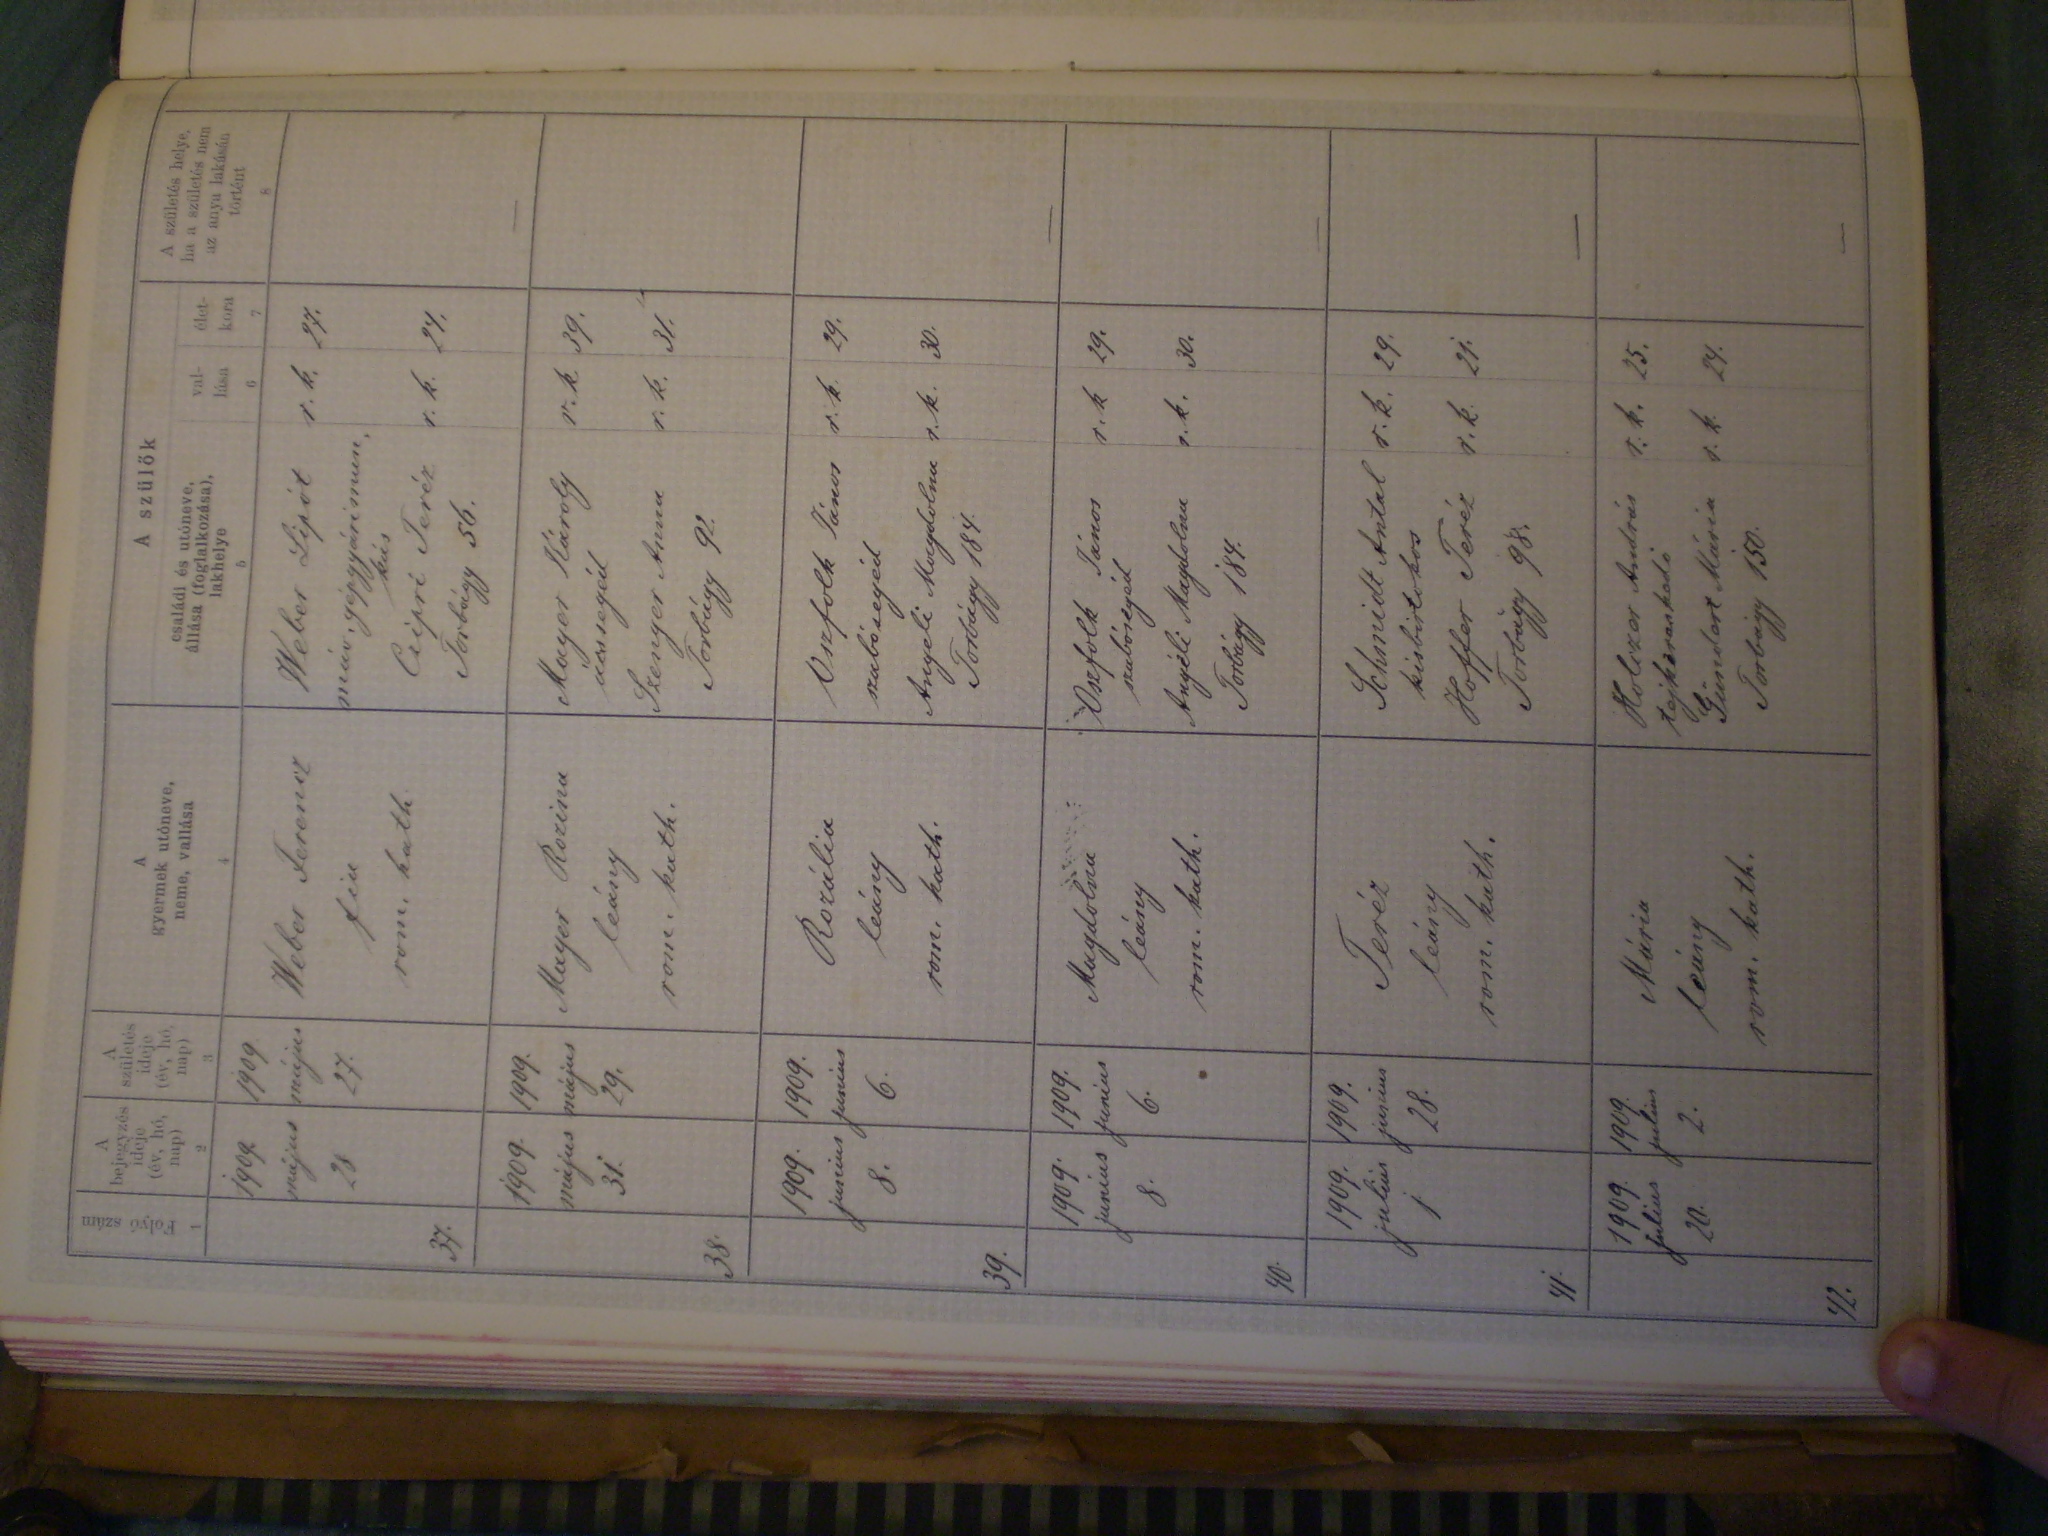 Folyó szám
A bejegyzés ideje (év, hó, nap)
A születés ideje (év, hó, nap)
A gyermek utóneve, neme, vallása
A szülők
családi és utóneve, állása (foglalkozása), lakhelye
val-lása
élet-kora
A születés helye, ha a születés nem az anya lakásán történt
1 2 3 4 5 6 7 8
37.
1909. május 28
1909. május 27.
Weber Ferencz
fiu
rom. kath.
Weber Lipót r. k. 27.
máv. gépgyárimun,
kás
Cziprí Teréz r. k. 24.
Torbágy 56.
38.
1909. május 31.
1909. május 29.
Mayer Rozina
leány
rom. kath.
Mayer Károly r. k. 39.
ácssegéd
Szenyer Anna r. k. 31.
Torbágy 92.
39.
1909. junius 8.
1909. junius 6.
Rozália
leány
rom. kath.
Oszfolk János r. k. 29.
szabósegéd
Angeli Magdolna r. k. 30.
Torbágy 184.
40.
1909. junius 8.
1909. junius 6.
Magdolna
leány
rom. kath.
Oszfolk János r. k 29.
szabósegéd
Angéli Magdolna r. k. 30.
Torbágy 184.
41.
1909. julius 1
1909. junius 28.
Teréz
leány
rom. kath.
Schmidt Antal r. k. 29.
kisbirtokos
Hoffer Teréz r. k. 21.
Torbágy 98.
42.
1909. julius 20.
1909. julius 2.
Mária
leány
rom. kath.
Holczer András r. k. 25.
tejkereskedő
Gundert Mária r. k. 24.
Torbágy 150.